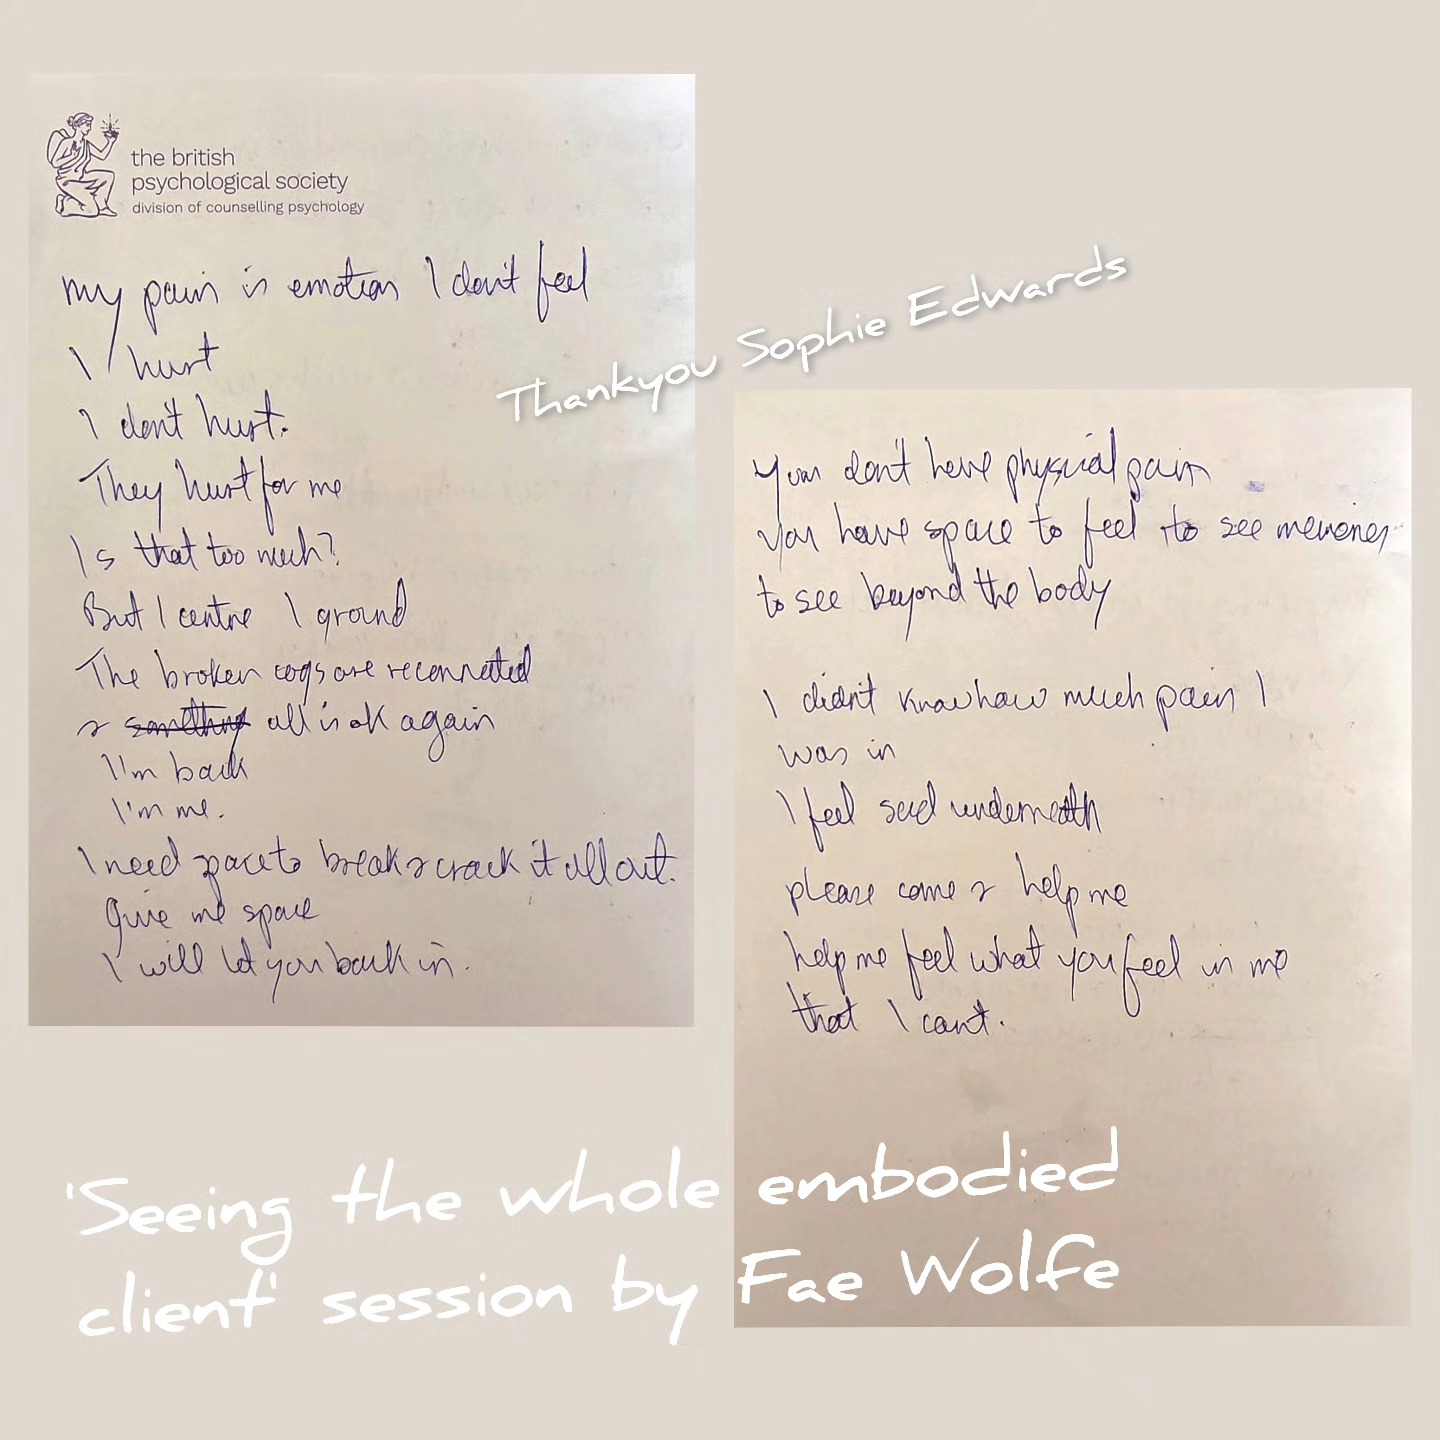 the british
psychological society
division of counselling psychology
my pain is emotion I don't feel
I hurt
I don't hurt.
They hurt for me
Is that too much?
But I centre I ground
The broken cogs are reconnected
& something all is ok again
I'm back
I'm me.
I need space to break & crack it all out.
Give me space
I will let you back in.
Thankyou Sophie Edwards
You don't have physical pain
You have space to feel to see memories
to see beyond the body
I didn't know how much pain I
was in
I feel sad underneath
please come & help me
help me feel what you feel in me
that I can't.
'Seeing the whole embodied
client' session by Fae Wolfe